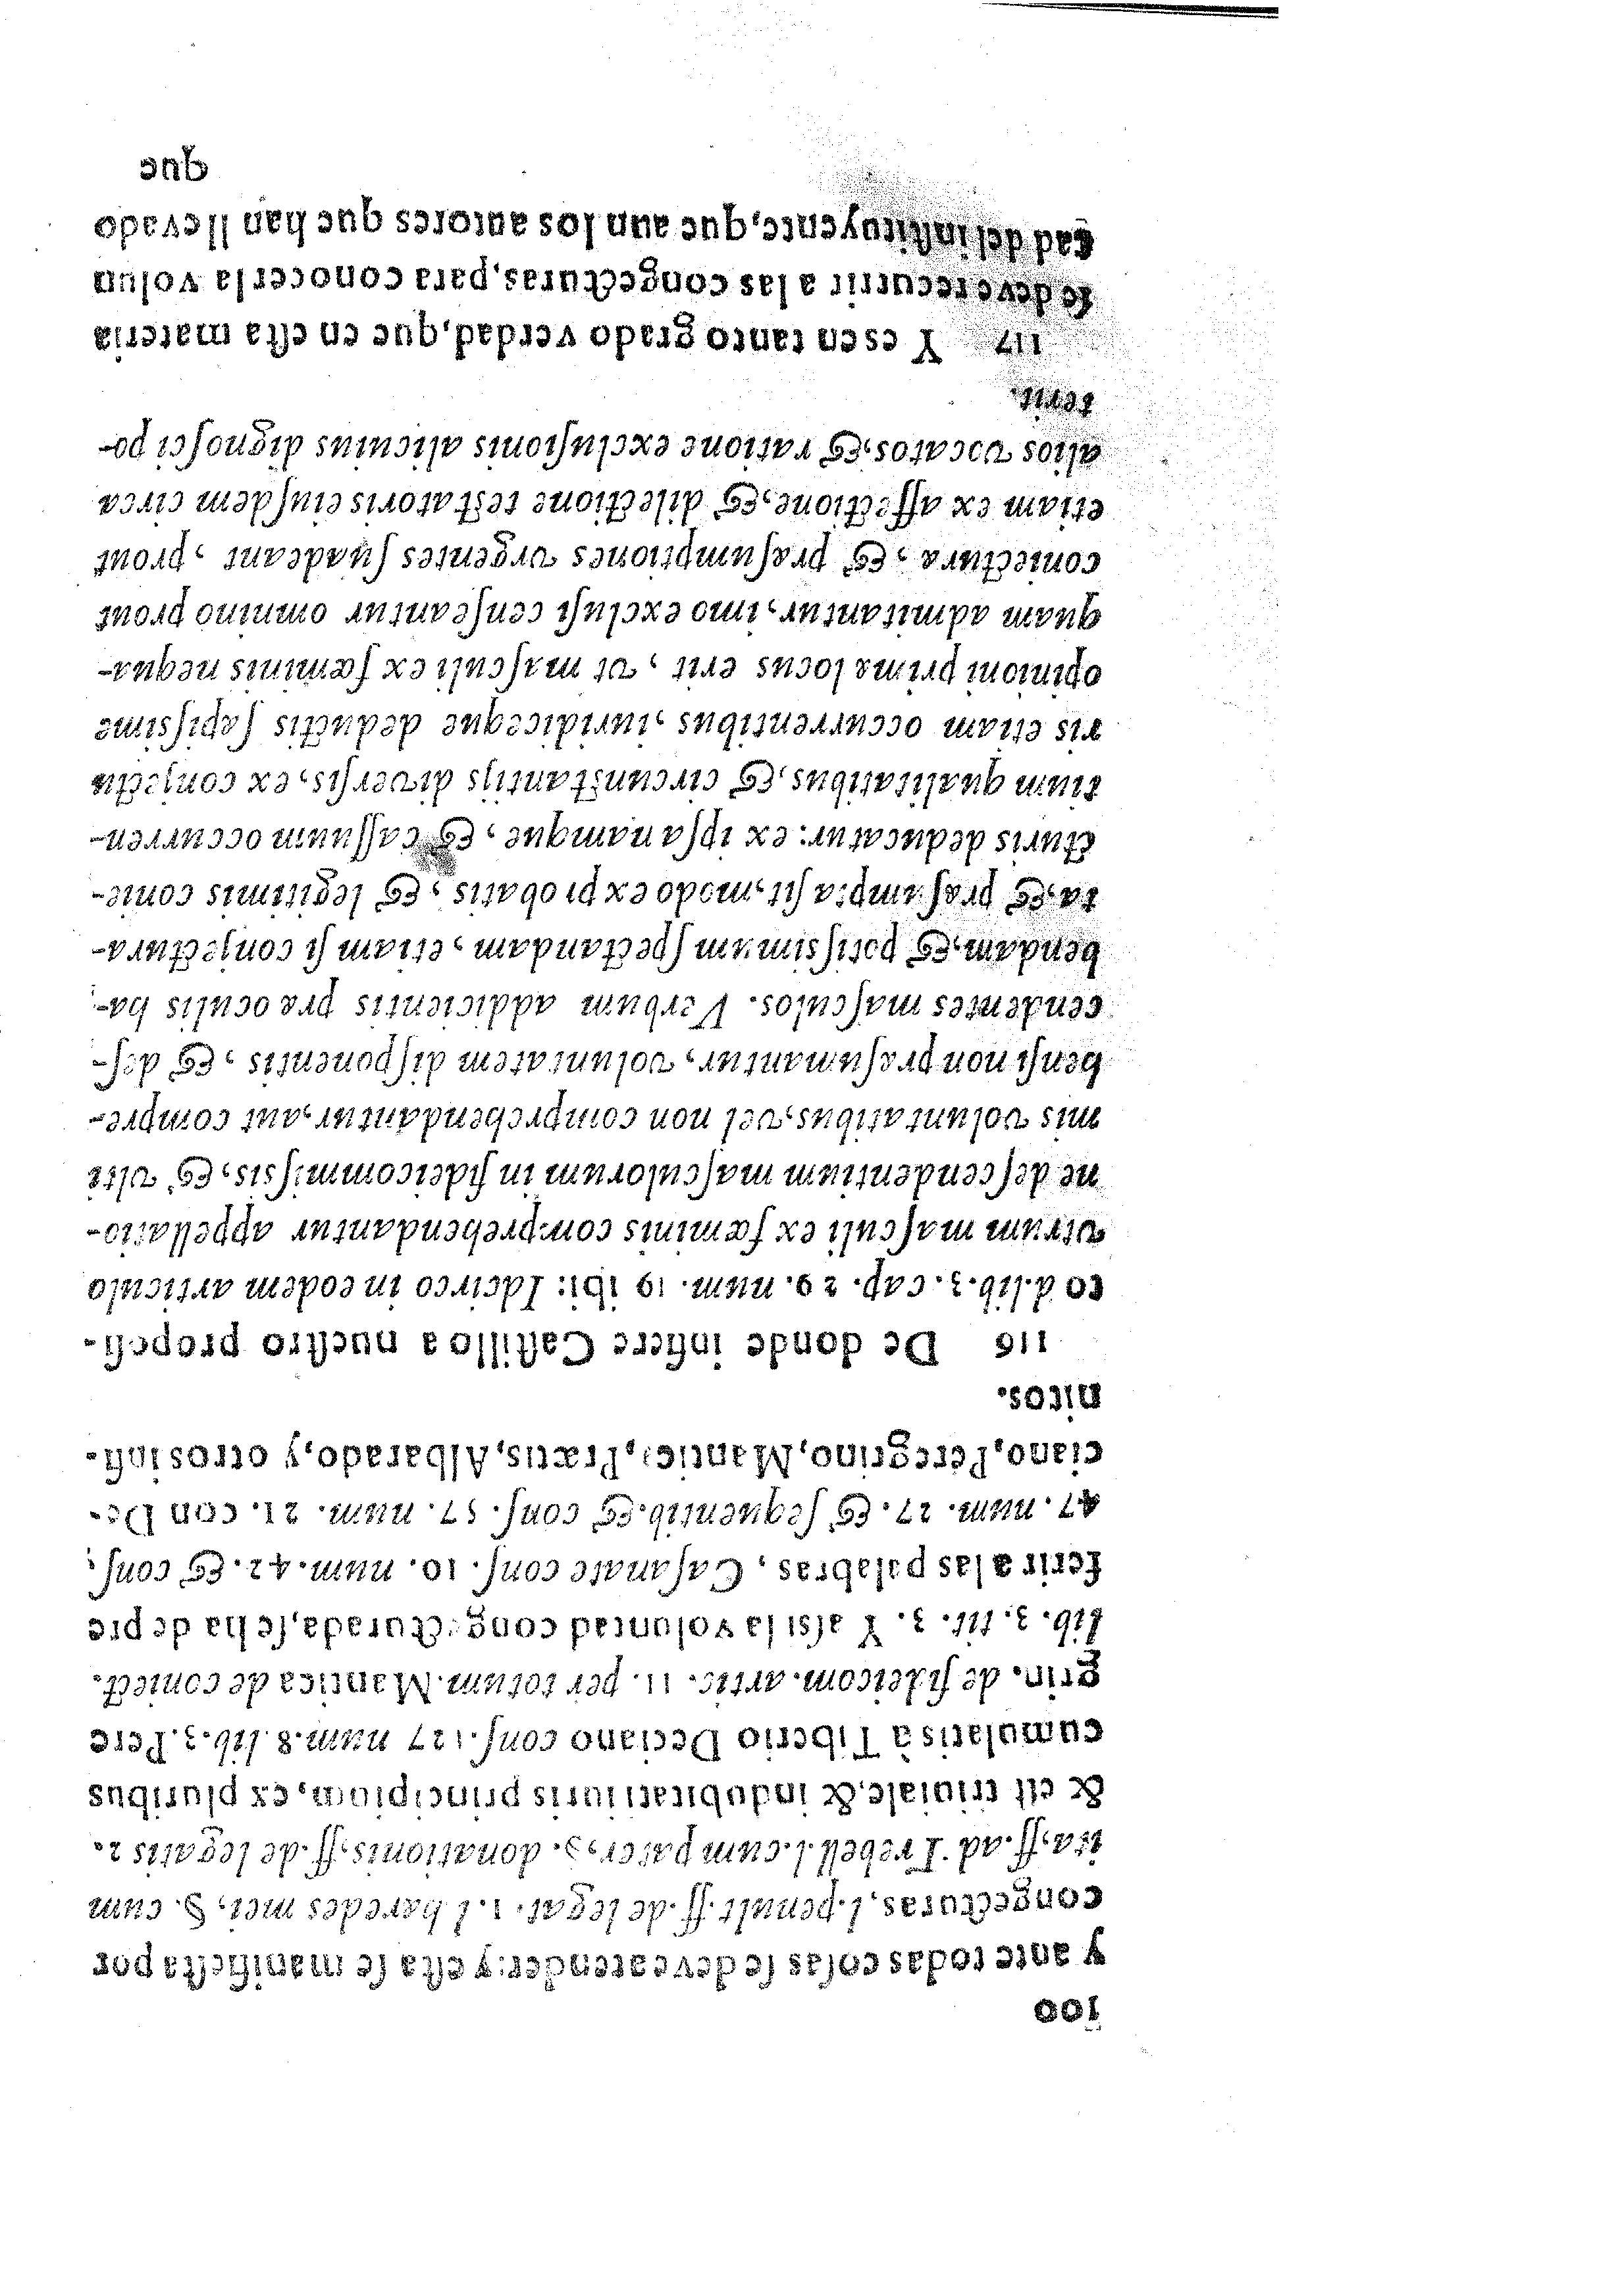 100
y ante todas cosas se deve atender: y esta se manifiesta por
congecturas, l. penult. ff. de legat. 1. l. hæredes mei, §. cum
ita, ff. ad Trebell. l. cum pater, §. donationis, ff. de legatis 2.
& est triuiale, & indubitati iuris principium, ex pluribus
cumulatis à Tiberio Deciano conſ. 127 num. 8. lib. 3. Pere
grin. de fideicom. artic. 11. per totum. Mantica de coniect.
lib. 3. tit. 3. Y aſsi la voluntad congecturada, ſe ha de pre
ferir a las palabras, Caſanate conſ. 10. num. 42. & conſ.
47. num. 27. & ſequentib. & conſ. 57. num. 21. con De-
ciano, Peregrino, Mantica, Prætus, Albarado, y otros infi-
nitos.
116 De donde infiere Caſtillo a nueſtro propoſi-
to d. lib. 3. cap. 29. num. 19 ibi: Idcirco in eodem articulo
vtrum maſculi ex fœminis comprehendantur appellatio-
ne deſcendentium maſculorum in fideicommiſsis, & vlti
mis voluntatibus, vel non comprehendantur, aut compre-
henſi non præſumantur, voluntatem diſponentis, & deſ-
cendentes maſculos. Verbum addicientis præ oculis ha-
bendam, & potiſsimum ſpectandam, etiam ſi conjectura-
ta, & præſumpta ſit, modo ex probatis, & legitimis conie-
cturis deducatur: ex ipſa namque, & caſſuum occurren-
tium qualitatibus, & circunſtantijs diverſis, ex conjectu
ris etiam occurrentibus, iuridiceque deductis ſæpiſsime
opinioni primæ locus erit, vt maſculi ex fœminis nequa-
quam admitantur, imo excluſi cenſeantur omnino prout
coniectura, & præſumptiones vrgentes ſuadeant, prout
etiam ex affectione, & dilectione teſtatoris eiuſdem circa
alios vocatos, & ratione excluſionis alicuius dignoſci po-
terit.
117 Y es en tanto grado verdad, que en eſta materia
ſe deve recurrir a las congecturas, para conocer la volun
tad del inſtituyente, que aun los autores que han llevado
que